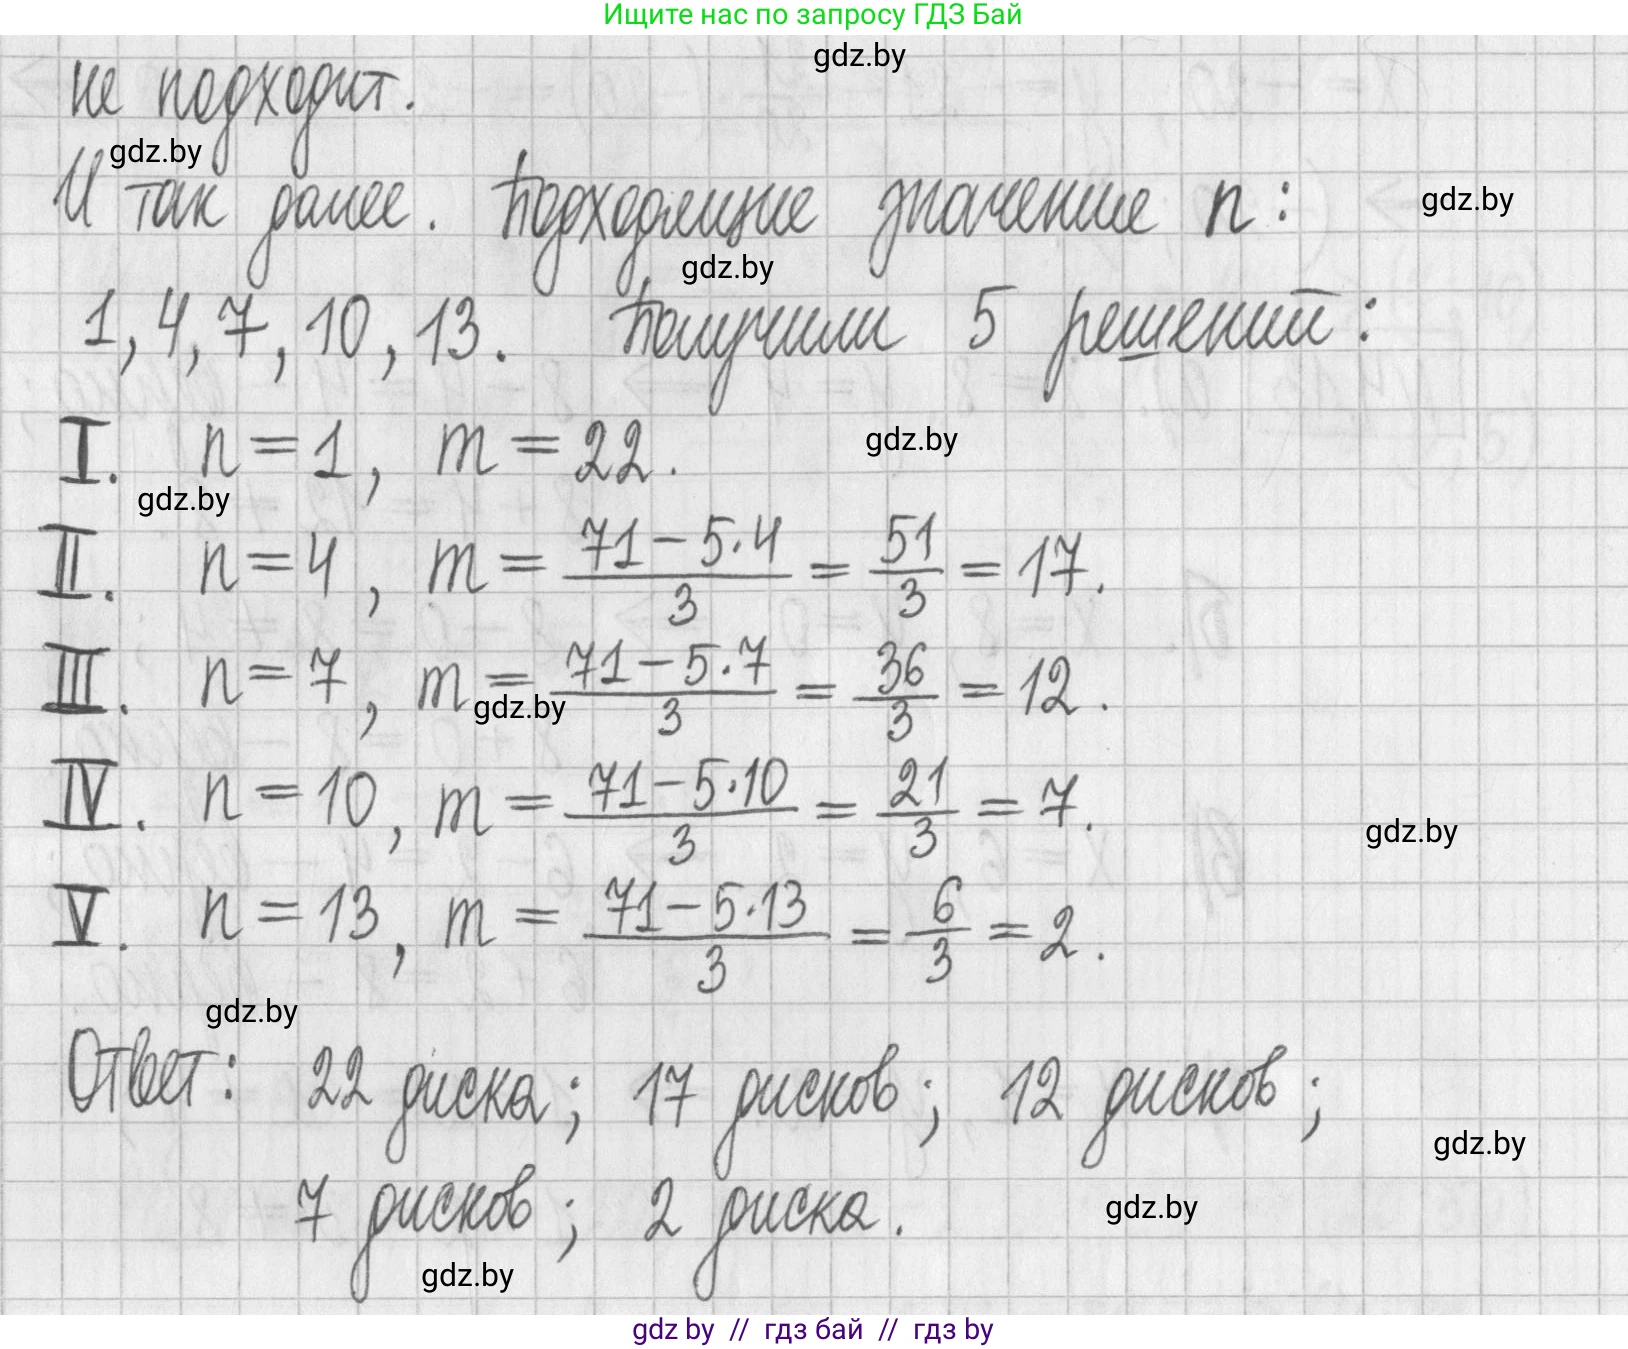 Ищите нас по запросу ГДЗ Бай
gdz.by
не подходит.
gdz.by
И так далее. Подходящие значение n:
gdz.by
gdz.by
1, 4, 7, 10, 13. Получили 5 решений:
I. n = 1, m = 22.
gdz.by
gdz.by
II. n = 4, m = \frac{71 - 5 \cdot 4}{3} = \frac{51}{3} = 17.
III. n = 7, m = \frac{71 - 5 \cdot 7}{3} = \frac{36}{3} = 12.
gdz.by
IV. n = 10, m = \frac{71 - 5 \cdot 10}{3} = \frac{21}{3} = 7.
gdz.by
V. n = 13, m = \frac{71 - 5 \cdot 13}{3} = \frac{6}{3} = 2.
gdz.by
Ответ: 22 диска; 17 дисков; 12 дисков;
gdz.by
7 дисков; 2 диска.
gdz.by
gdz.by
gdz by // гдз бай // гдз by